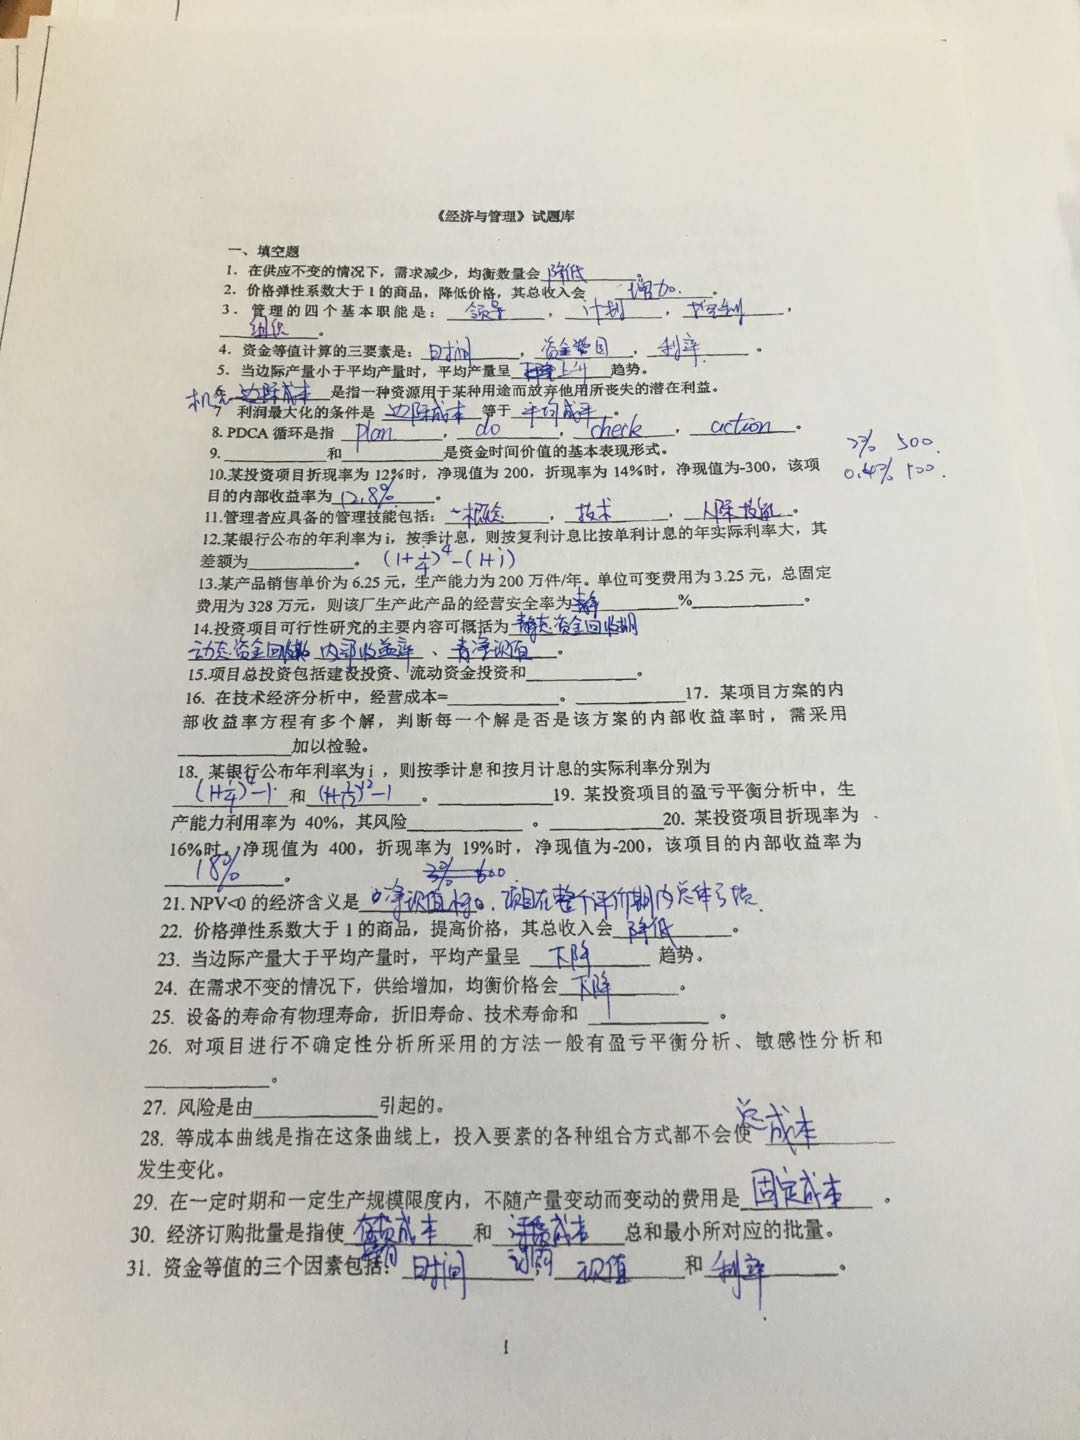 《经济与管理》试题库
一、填空题
1．在供应不变的情况下，需求减少，均衡数量会 降低 。
2．价格弹性系数大于 1 的商品，降低价格，其总收入会 增加 。
3．管理的四个基本职能是： 领导 ， 计划 ， 控制 ，
组织 。
4．资金等值计算的三要素是： 时间 ， 资金 ， 利率 。
5．当边际产量小于平均产量时，平均产量呈 上升 趋势。
6 机会 边际成本 是指一种资源用于某种用途而放弃他用所丧失的潜在利益。
7 利润最大化的条件是 边际成本 等于 平均成本 。
8. PDCA 循环是指 plan ， do ， check ， action 。
2% 500
9. ____ 和 ____ 是资金时间价值的基本表现形式。
10.某投资项目折现率为 12%时，净现值为 200，折现率为 14%时，净现值为-300，该项
0.4% 100
目的内部收益率为 12.8% 。
11.管理者应具备的管理技能包括： 概念 ， 技术 ， 人际技能 。
12.某银行公布的年利率为 i，按季计息，则按复利计息比按单利计息的年实际利率大，其
差额为 ____ 。 (1+i/4)^4-(1+i)
13.某产品销售单价为 6.25 元，生产能力为 200 万件/年。单位可变费用为 3.25 元，总固定
费用为 328 万元，则该厂生产此产品的经营安全率为 ____ % ____ 。
14.投资项目可行性研究的主要内容可概括为 静态资金回收期
动态资金回收期 内部收益率 、 净现值 。
15.项目总投资包括建设投资、流动资金投资和 ____ 。
16．在技术经济分析中，经营成本= ____ 。 ____ 17．某项目方案的内
部收益率方程有多个解，判断每一个解是否是该方案的内部收益率时，需采用
____ 加以检验。
18．某银行公布年利率为 i ，则按季计息和按月计息的实际利率分别为
(1+i/4)^4-1 和 (1+i/12)^12-1 。 ____ 19. 某投资项目的盈亏平衡分析中，生
产能力利用率为 40%，其风险 ____ 。 ____ 20. 某投资项目折现率为
16%时，净现值为 400，折现率为 19%时，净现值为-200，该项目的内部收益率为
18% 。 3% 600
21. NPV<0 的经济含义是 净现值 ，项目在整个评价期内总体亏损
22. 价格弹性系数大于 1 的商品，提高价格，其总收入会 降低 。
23. 当边际产量大于平均产量时，平均产量呈 下降 趋势。
24. 在需求不变的情况下，供给增加，均衡价格会 下降 。
25. 设备的寿命有物理寿命，折旧寿命、技术寿命和 ____ 。
26. 对项目进行不确定性分析所采用的方法一般有盈亏平衡分析、敏感性分析和
____ 。
27. 风险是由 ____ 引起的。
28. 等成本曲线是指在这条曲线上，投入要素的各种组合方式都不会使 总成本
发生变化。
29. 在一定时期和一定生产规模限度内，不随产量变动而变动的费用是 固定成本 。
30. 经济订购批量是指使 存货成本 和 订货成本 总和最小所对应的批量。
31. 资金等值的三个因素包括： 时间 现值 和 利率 。
1